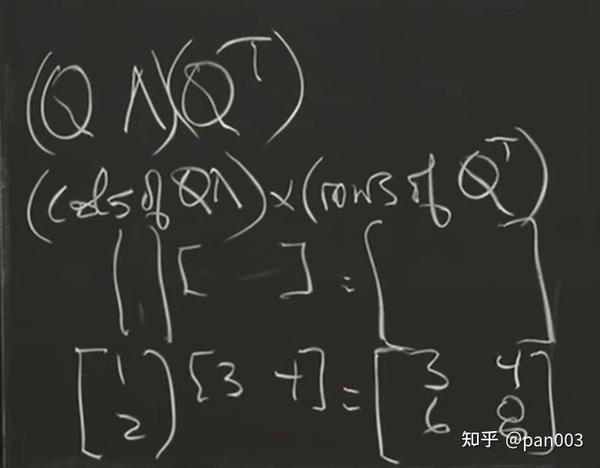 (Q Λ)(Qᵀ)
(cols of QΛ) × (rows of Qᵀ)
[ ] [ ] = [ ]
[1 [3 4] = [3 4
2] 6 8]
知乎 @pan003